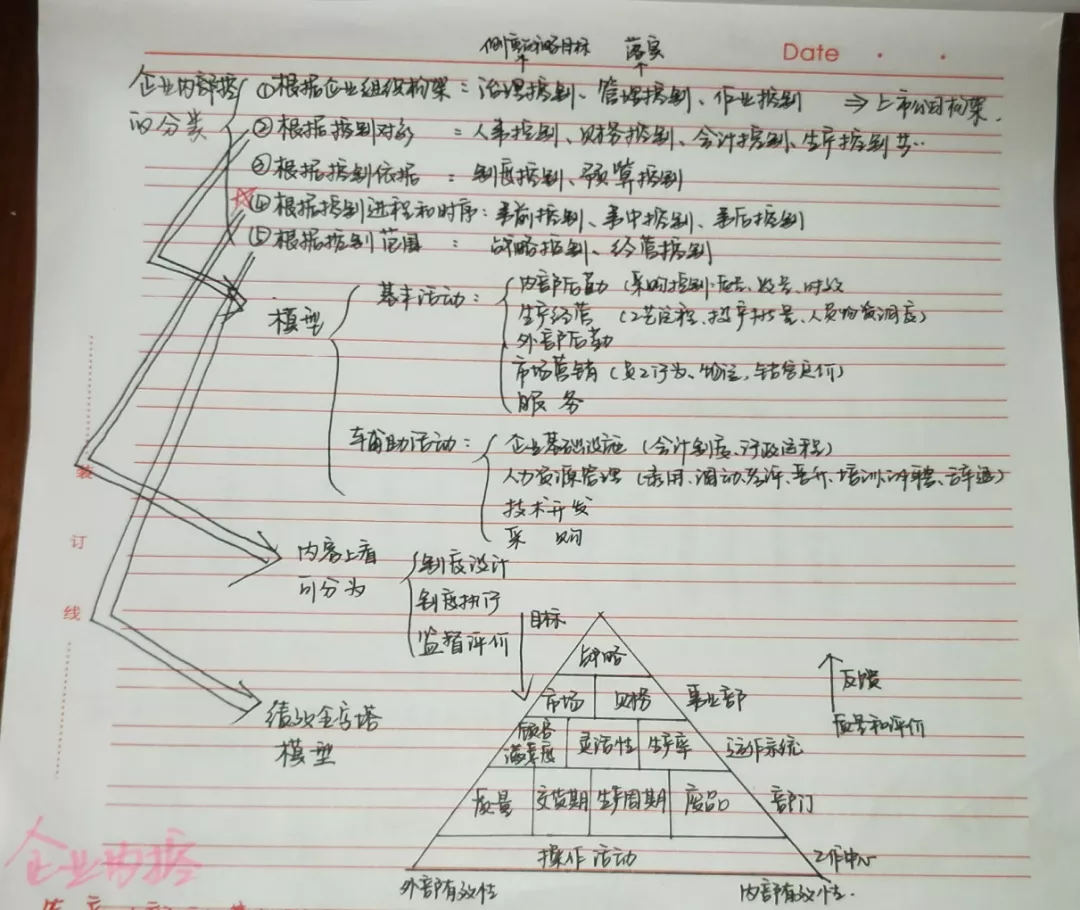 侧重战略目标 落实
Date
企业内部控的分类
①根据企业组织构架：治理控制、管理控制、作业控制 ⇒上市公司构架.
②根据控制对象：人事控制、财务控制、会计控制、生产控制等…
③根据控制依据：制度控制、预算控制
☆④根据控制进程和时序：事前控制、事中控制、事后控制
⑤根据控制范围：战略控制、经营控制
模型
基本活动：
内部后勤（采购控制:质量、数量、时效
生产经营（工艺流程、投产打量、人员物资调度）
外部后勤
市场营销（员工行为、物流、销售定价）
服务
辅助活动：
企业基础设施（会计制度、行政流程）
人力资源管理（录用、调动、考评、晋升、培训、评聘、辞退）
技术开发
采购
装
订
线
内容上看可分为
制度设计
制度执行
监督评价
绩效金字塔
模型
目标
战略
市场 财务 事业部
顾客满意度 灵活性 生产率 运作系统
质量 交货期 生产周期 废品 部门
操作活动 工作中心
外部有效性 内部有效性.
反馈
和评价
企业内控